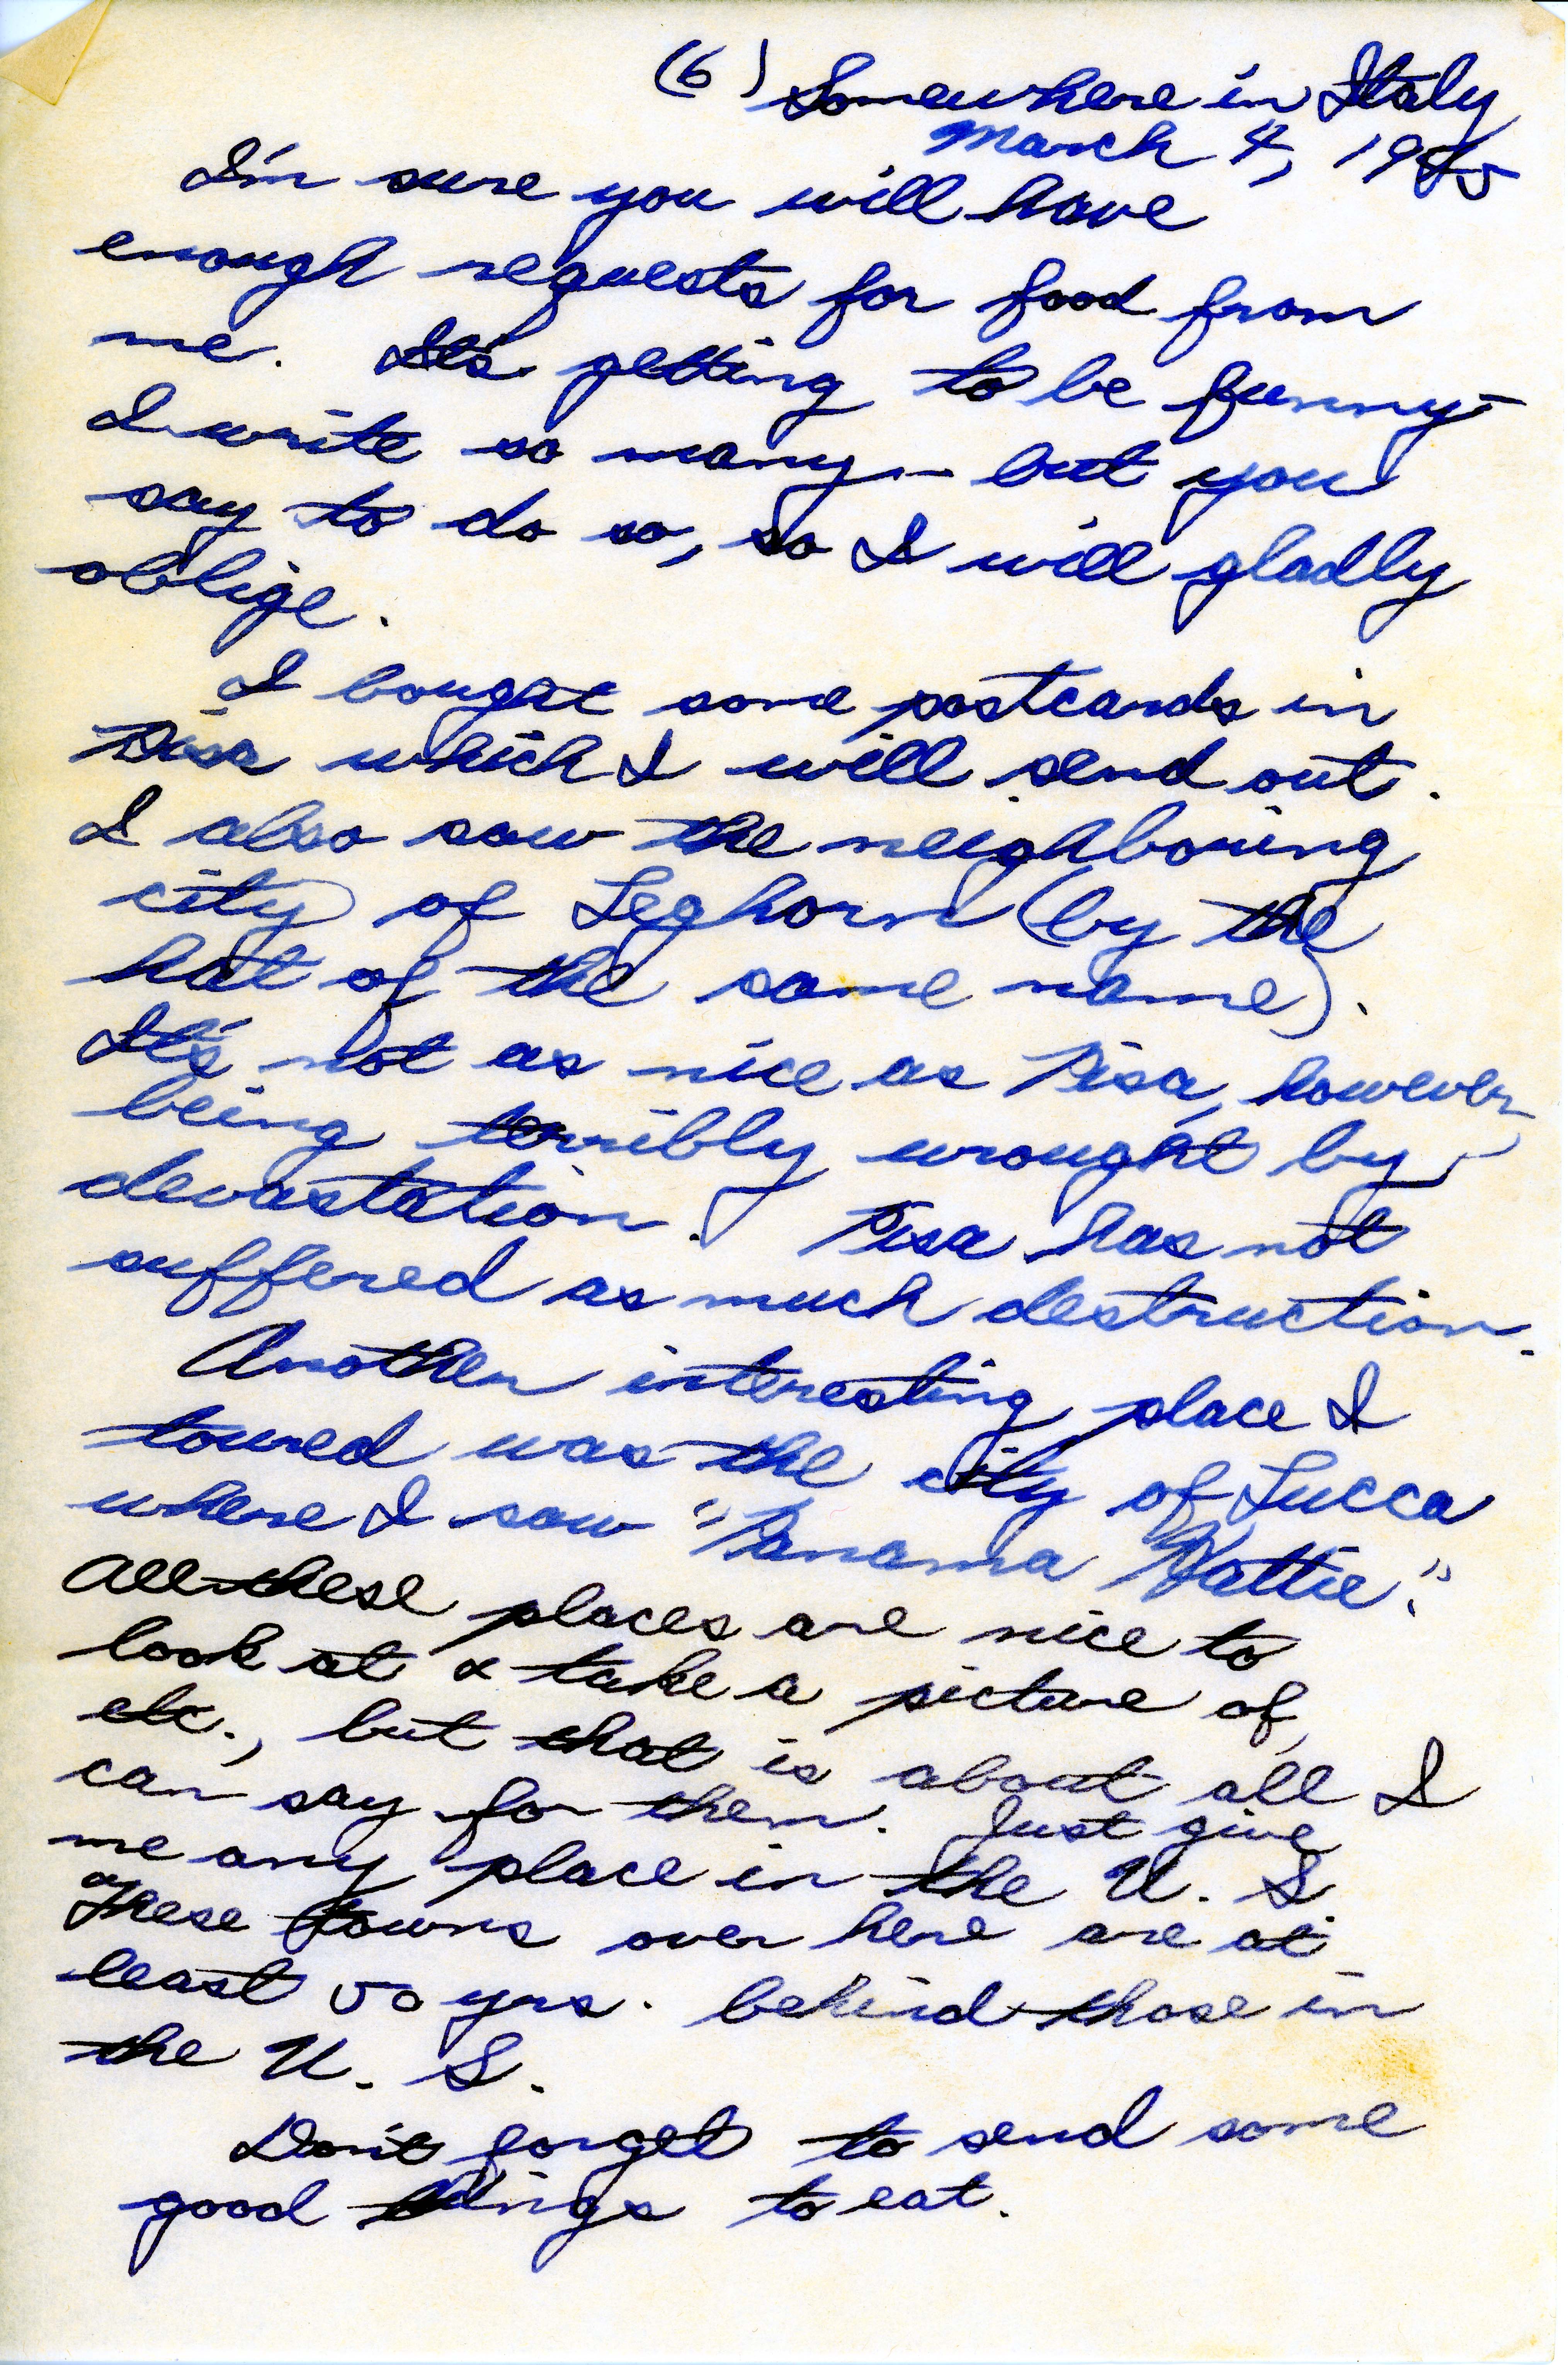 (6) Somewhere in Italy
March 4, 1945
I'm sure you will have
enough requests for food from
me. It's getting to be funny -
I write so many - but you
say to do so, so I will gladly
oblige.
I bought some postcards in
Pisa which I will send out.
I also saw the neighboring
city of Leghorn (by the
hat of the same name).
It's not as nice as Pisa, however,
being terribly wrought by
devastation. Pisa has not
suffered as much destruction.
Another interesting place I
toured was the city of Lucca
where I saw "Panama Hattie".
All these places are nice to
look at & take a picture of,
etc., but that is about all I
can say for them. Just give
me any place in the U. S.
These towns over here are at
least 50 yrs. behind those in
the U. S.
Don't forget to send some
good things to eat.